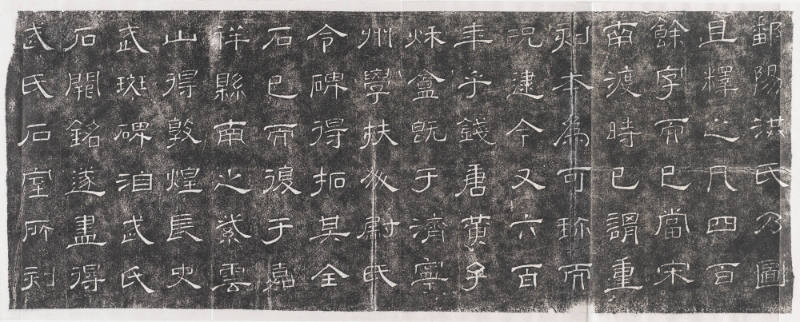 鄱陽洪氏乃圖
且釋之凡四百
餘字而已當宋
南渡時已謂重
刻本為可珎而
況逮今又六百
年乎錢唐黃子
秌盦既于濟寧
州學扶升尉氏
令碑得拓其全
石已而復于嘉
祥縣南之紫雲
山得敦煌長史
武斑碑洎武氏
石闕銘遂盡得
武氏石室所刻